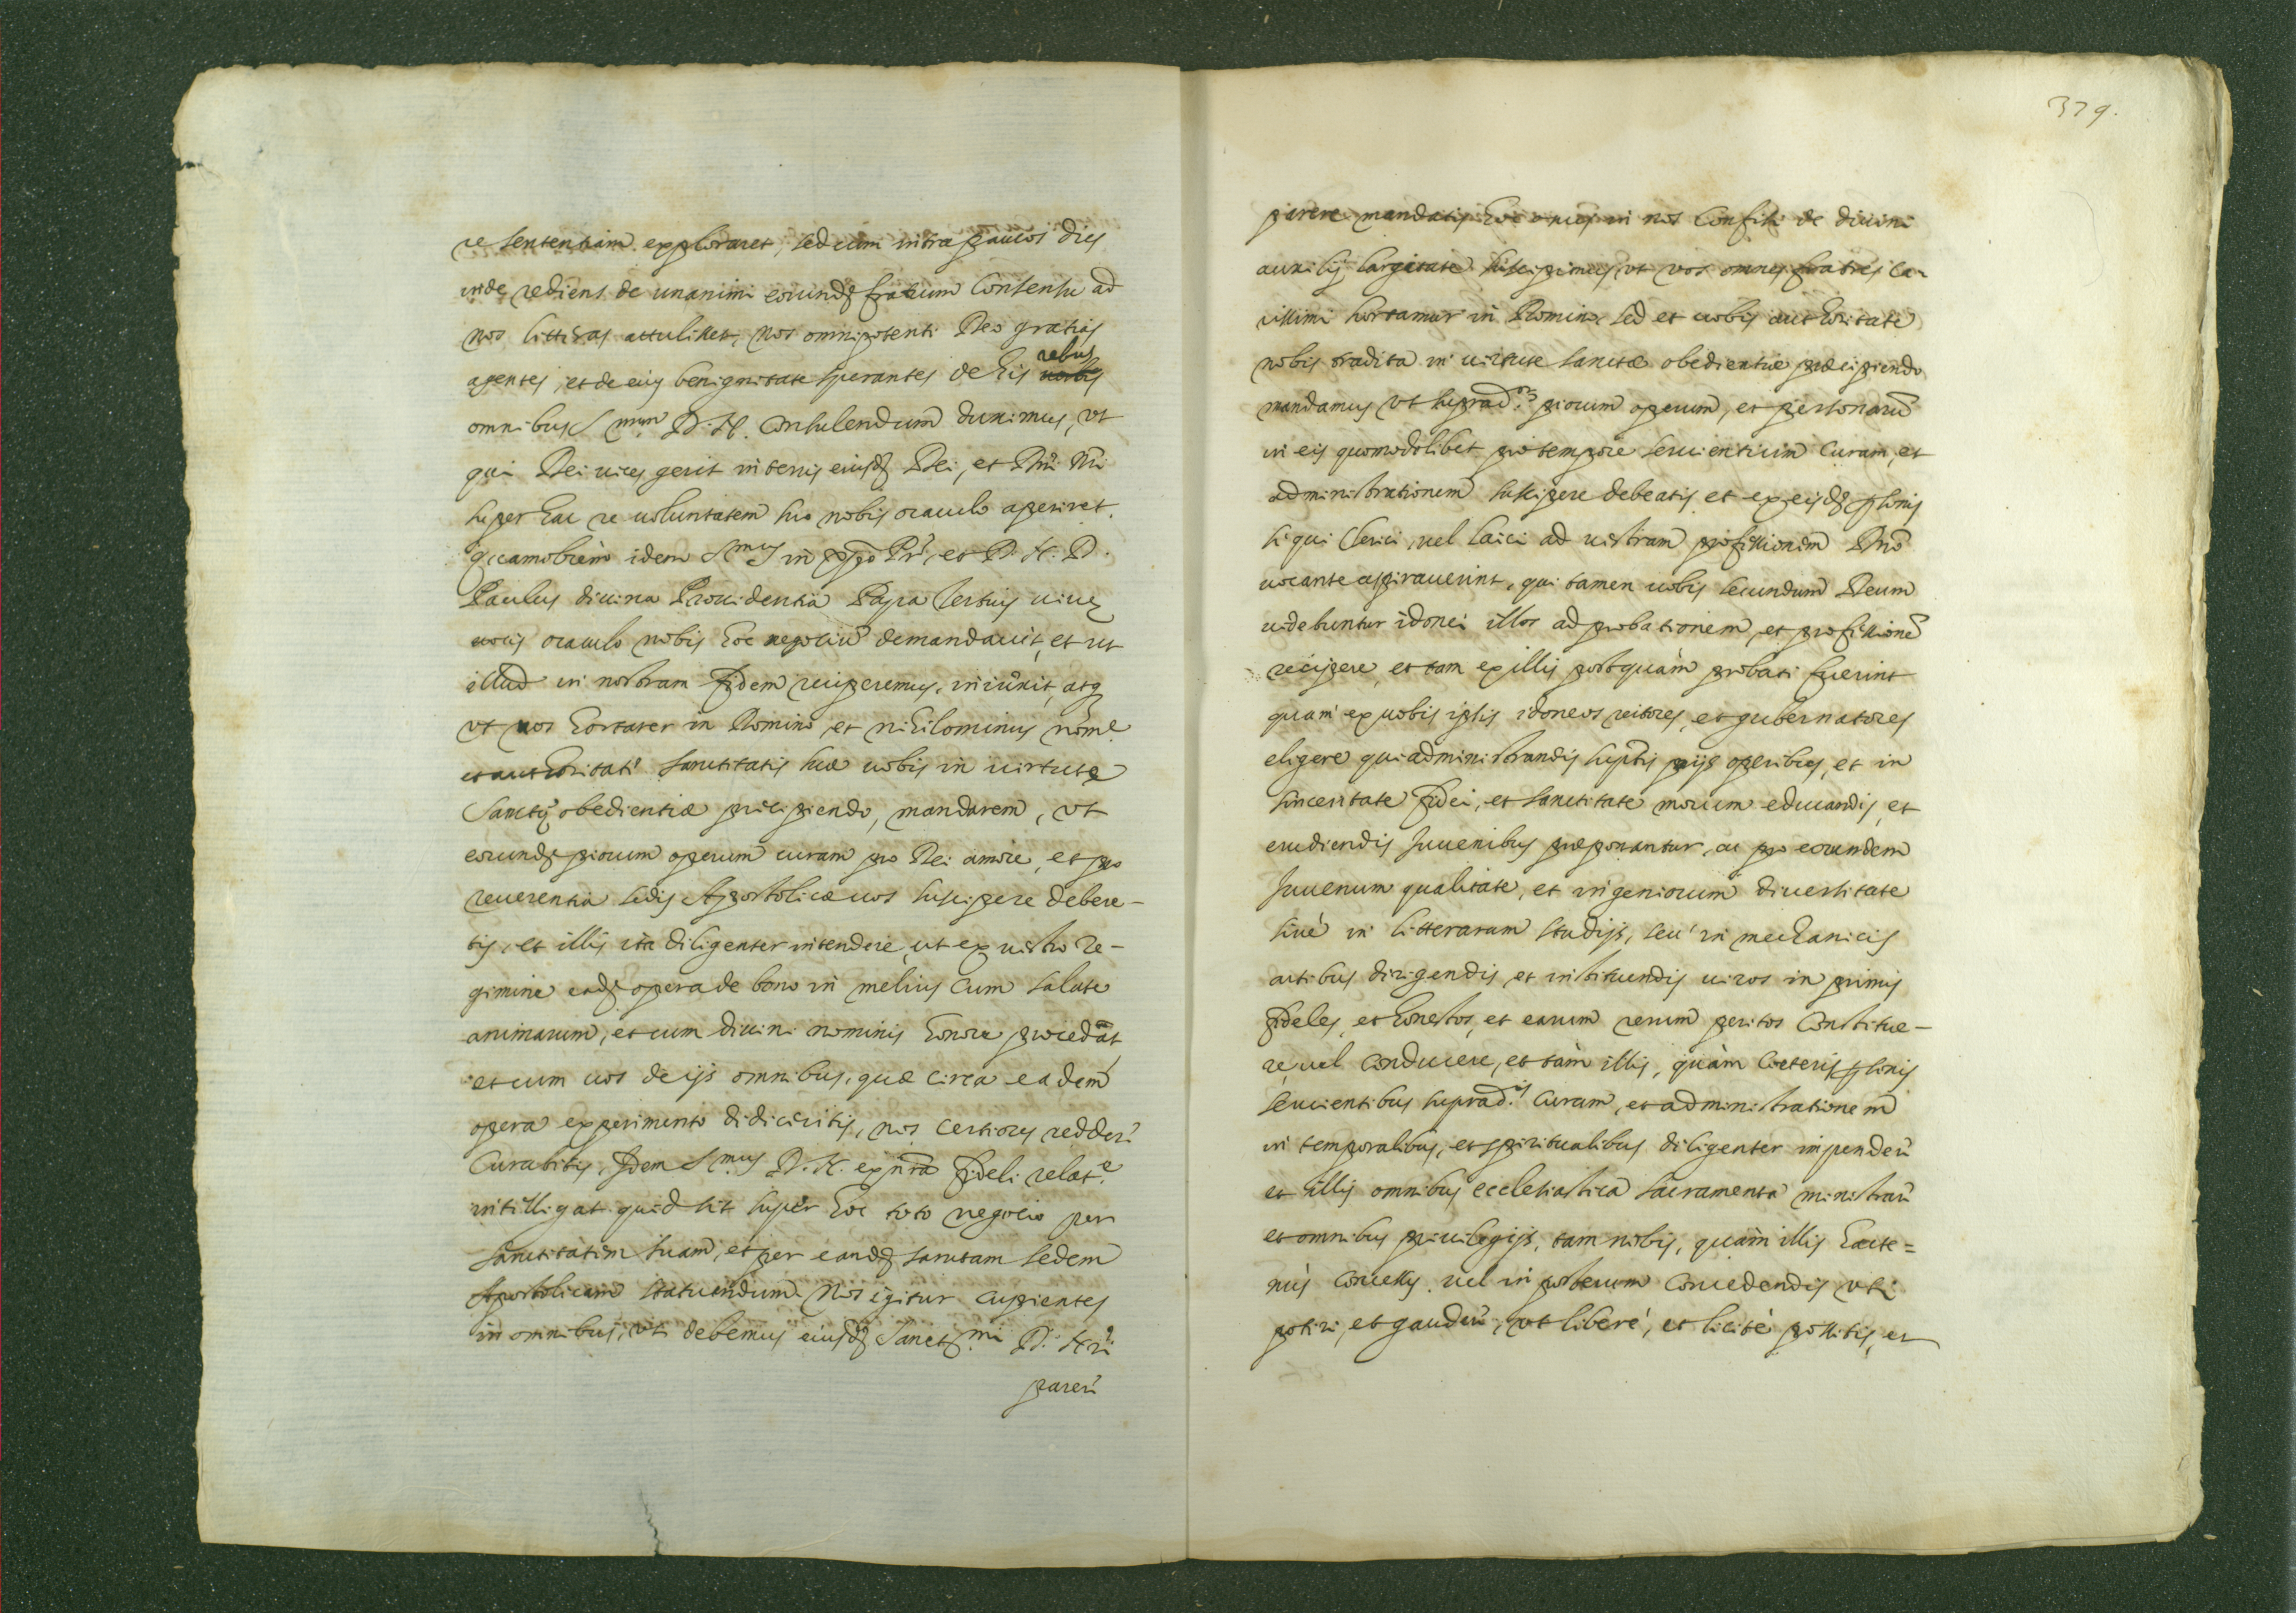 re sententiam exploraret, sed cum intra paucos dies
inde rediens de unanimi eorundẽ fratrum consensu ad
nos litteras attulisset, nos omnipotenti Deo gratias
agentes, et de eius benignitate sperantes de his rebus
omnibus S.mum D. N. consulendum duximus, vt
qui Dei uices gerit in terris eiusdẽ Dei, et Dñi Nri
super hac re uoluntatem suo nobis oraculo aperiret.
quamobrem idem S.mus in xpo Pr, et D. N. D.
Paulus diuina Prouidentia Papa Tertius uiuę
uocis oraculo nobis hoc negociũ demandauit, et ut
illud in nostram fidem reciperemus, iniunxit, atq
vt uos hortarer in Domino, et nihilominus nom.e
et authoritate sanctitatis suæ uobis in uirtute
Sanctę obedientiæ precipiendo, mandarem, vt
eorundẽ piorum operum curam pro Dei amore, et pro
reuerentia sedis Apostolicæ uos suscipere debere-
tis, et illis ita diligenter intendere, ut ex uestro re-
gimine eadẽ opera de bono in melius cum salute
animarum, et cum diuini nominis honore procedãt,
et cum uos de ijs omnibus, quæ circa eadem
opera experimento didiceritis, nos certiores reddere
curabitis, Idem S.mus D. N. ex nra fideli relat.e
intelligat quid sit super hoc toto negocio per
sanctitatem suam, et per eandẽ sanctam sedem
Apostolicam statuendum. Nos igitur cupientes
in omnibus, vti debemus eiusdẽ Sanctiss.mi D. Nri
parere
379.
parere mandatis hoc onus in nos confisi de diuini
auxilij largitate suscipimus, vt vos omnes fratres ca-
rissimi hortamur in Domino, sed et uobis authoritate
nobis tradita in uirtute sanctæ obedientiæ præcipiendo
mandamus vt suprad.orum piorum operum, et personarũ
in eis quomodolibet pro tempore seruientium curam, et
administrationem suscipere debeatis et ex eisdẽ psonis
si qui clerici, uel laici ad uestram professionem Dño
uocante aspirauerint, qui tamen uobis secundum Deum
uidebuntur idonei illos ad probationem, et professionẽ
recipere, et tam ex illis postquàm probati fuerint
quam ex uobis ipsis idoneos rectores, et gubernatores
eligere qui administrandis suptis pijs operibus, et in
sinceritate fidei, et sanctitate morum educandis, et
erudiendis Iuuenibus præponantur, ac pro eorundem
Iuuenum qualitate, et ingeniorum diuersitate
siue in litterarum studijs, seu in mechanicis
artibus dirigendis, et instituendis uiros in primis
fideles, et honestos, et earum rerum peritos constitue-
re, uel conducere, et tàm illis, quàm coeteris psonis
seruientibus suprad.is curam, et administrationem
in temporalibus, et spiritualibus diligenter impendere
et illis omnibus ecclesiastica sacramenta ministrare
et omnibus priuilegijs, tam nobis, quàm illis hacte=
nus concessis, uel in posterum concedendis vti
potiri, et gaudere, vt liberè, et licitè possitis, et